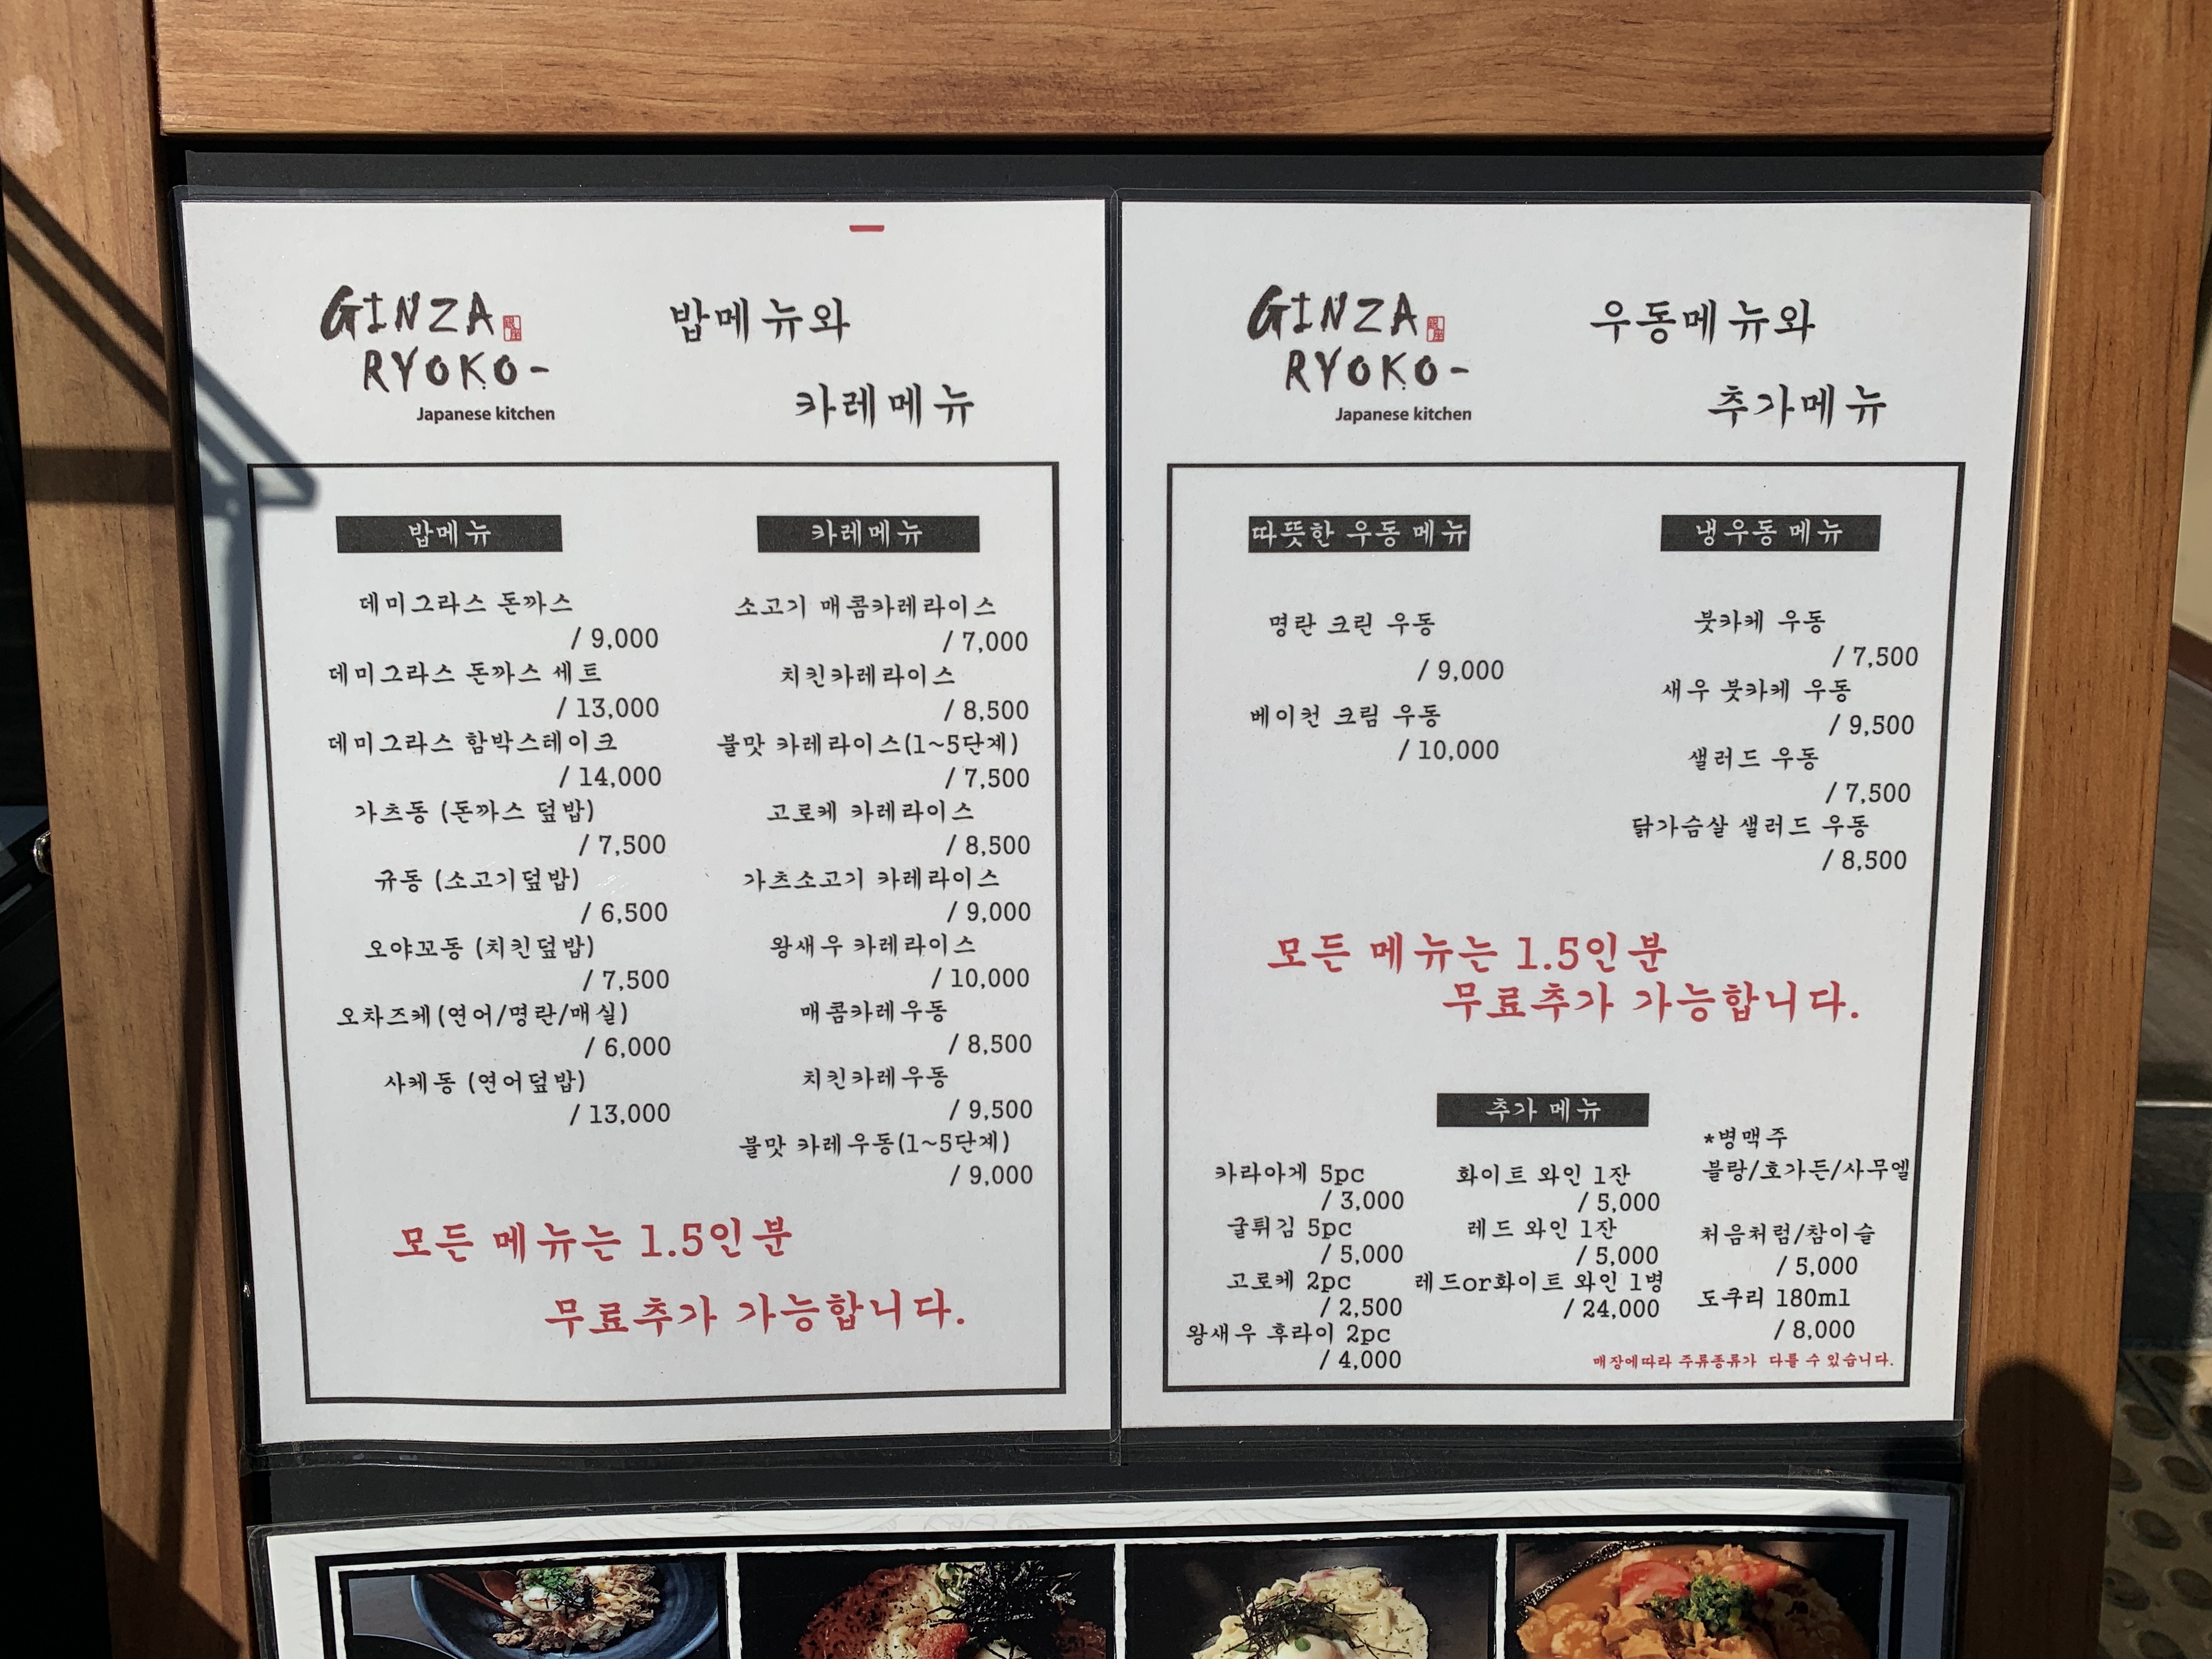 GINZA
RYOKO-
Japanese kitchen
밥메뉴와
카레메뉴
밥메뉴
데미그라스 돈까스
/ 9,000
데미그라스 돈까스 세트
/ 13,000
데미그라스 함박스테이크
/ 14,000
가츠동 (돈까스 덮밥)
/ 7,500
규동 (소고기덮밥)
/ 6,500
오야꼬동 (치킨덮밥)
/ 7,500
오차즈케(연어/명란/매실)
/ 6,000
사케동 (연어덮밥)
/ 13,000
카레메뉴
소고기 매콤카레라이스
/ 7,000
치킨카레라이스
/ 8,500
불맛 카레라이스(1~5단계)
/ 7,500
고로케 카레라이스
/ 8,500
가츠소고기 카레라이스
/ 9,000
왕새우 카레라이스
/ 10,000
매콤카레우동
/ 8,500
치킨카레우동
/ 9,500
불맛 카레우동(1~5단계)
/ 9,000
모든 메뉴는 1.5인분
무료추가 가능합니다.
GINZA
RYOKO-
Japanese kitchen
우동메뉴와
추가메뉴
따뜻한 우동 메뉴
명란 크린 우동
/ 9,000
베이컨 크림 우동
/ 10,000
냉우동 메뉴
붓카케 우동
/ 7,500
새우 붓카케 우동
/ 9,500
샐러드 우동
/ 7,500
닭가슴살 샐러드 우동
/ 8,500
모든 메뉴는 1.5인분
무료추가 가능합니다.
추가 메뉴
카라아게 5pc
/ 3,000
굴튀김 5pc
/ 5,000
고로케 2pc
/ 2,500
왕새우 후라이 2pc
/ 4,000
화이트 와인 1잔
/ 5,000
레드 와인 1잔
/ 5,000
레드or화이트 와인 1병
/ 24,000
*병맥주
블랑/호가든/사무엘
처음처럼/참이슬
/ 5,000
도쿠리 180ml
/ 8,000
매장에따라 주류종류가 다를 수 있습니다.